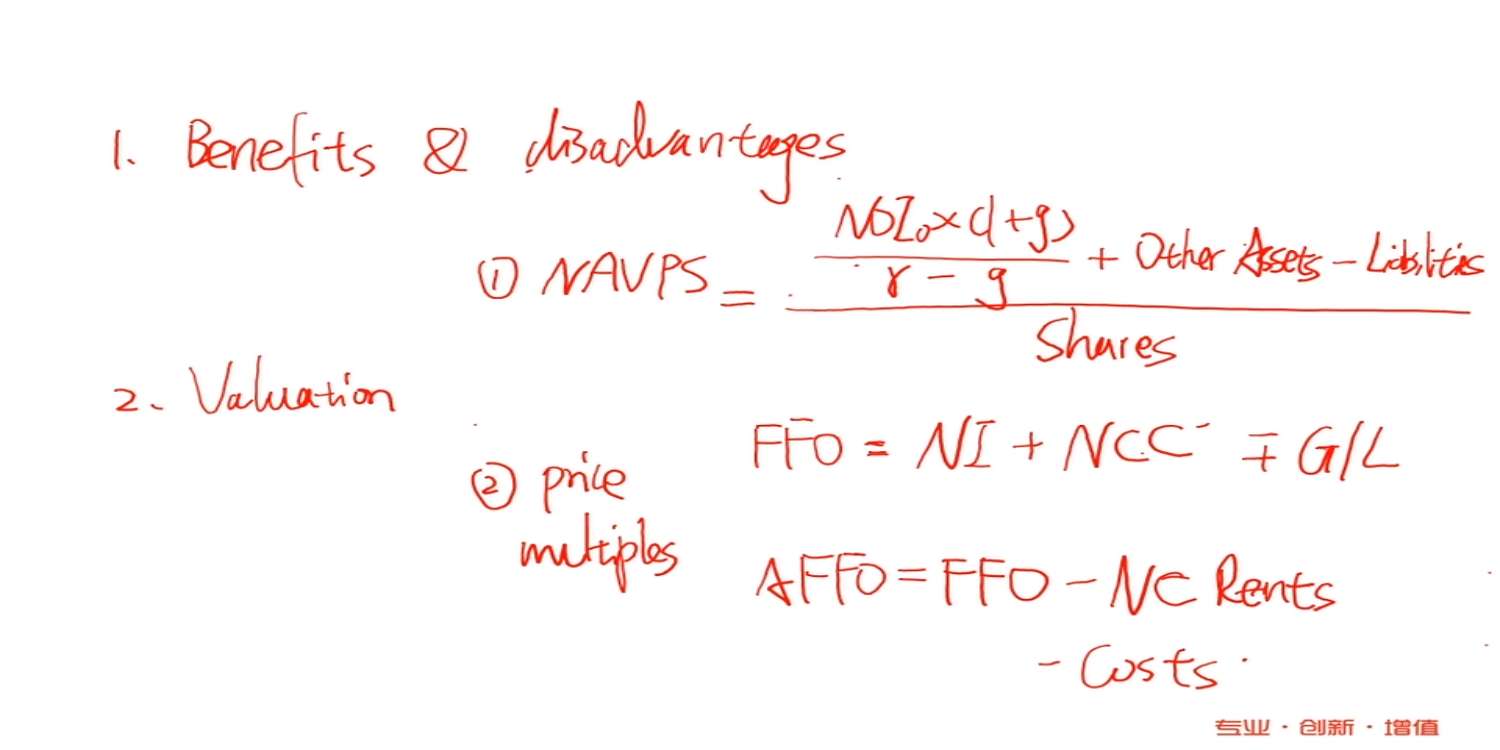 1. Benefits & disadvantages
① NAVPS = (NOI₀×(1+g) / (r − g) + Other Assets − Liabilities) / Shares
2. Valuation
② price multiples
FFO = NI + NCC ∓ G/L
AFFO = FFO − NC Rents
- Costs
专业·创新·增值